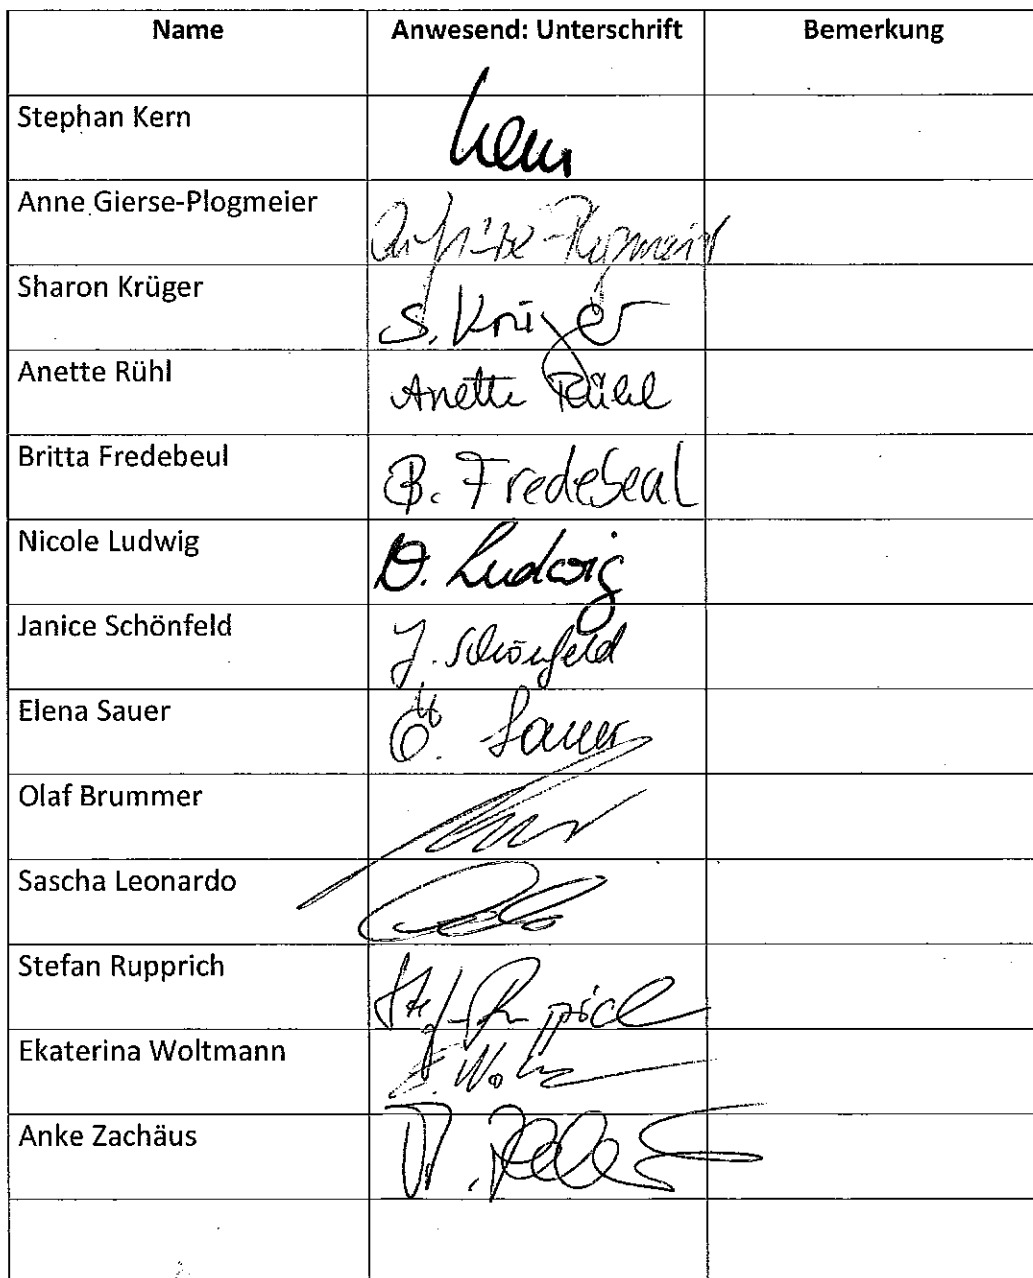 Name Anwesend: Unterschrift Bemerkung
Stephan Kern Kern
Anne Gierse-Plogmeier
Sharon Krüger S. Krüger
Anette Rühl Anette Rühl
Britta Fredebeul B. Fredebeul
Nicole Ludwig Ludwig
Janice Schönfeld J. Schönfeld
Elena Sauer E. Sauer
Olaf Brummer
Sascha Leonardo
Stefan Rupprich
Ekaterina Woltmann
Anke Zachäus